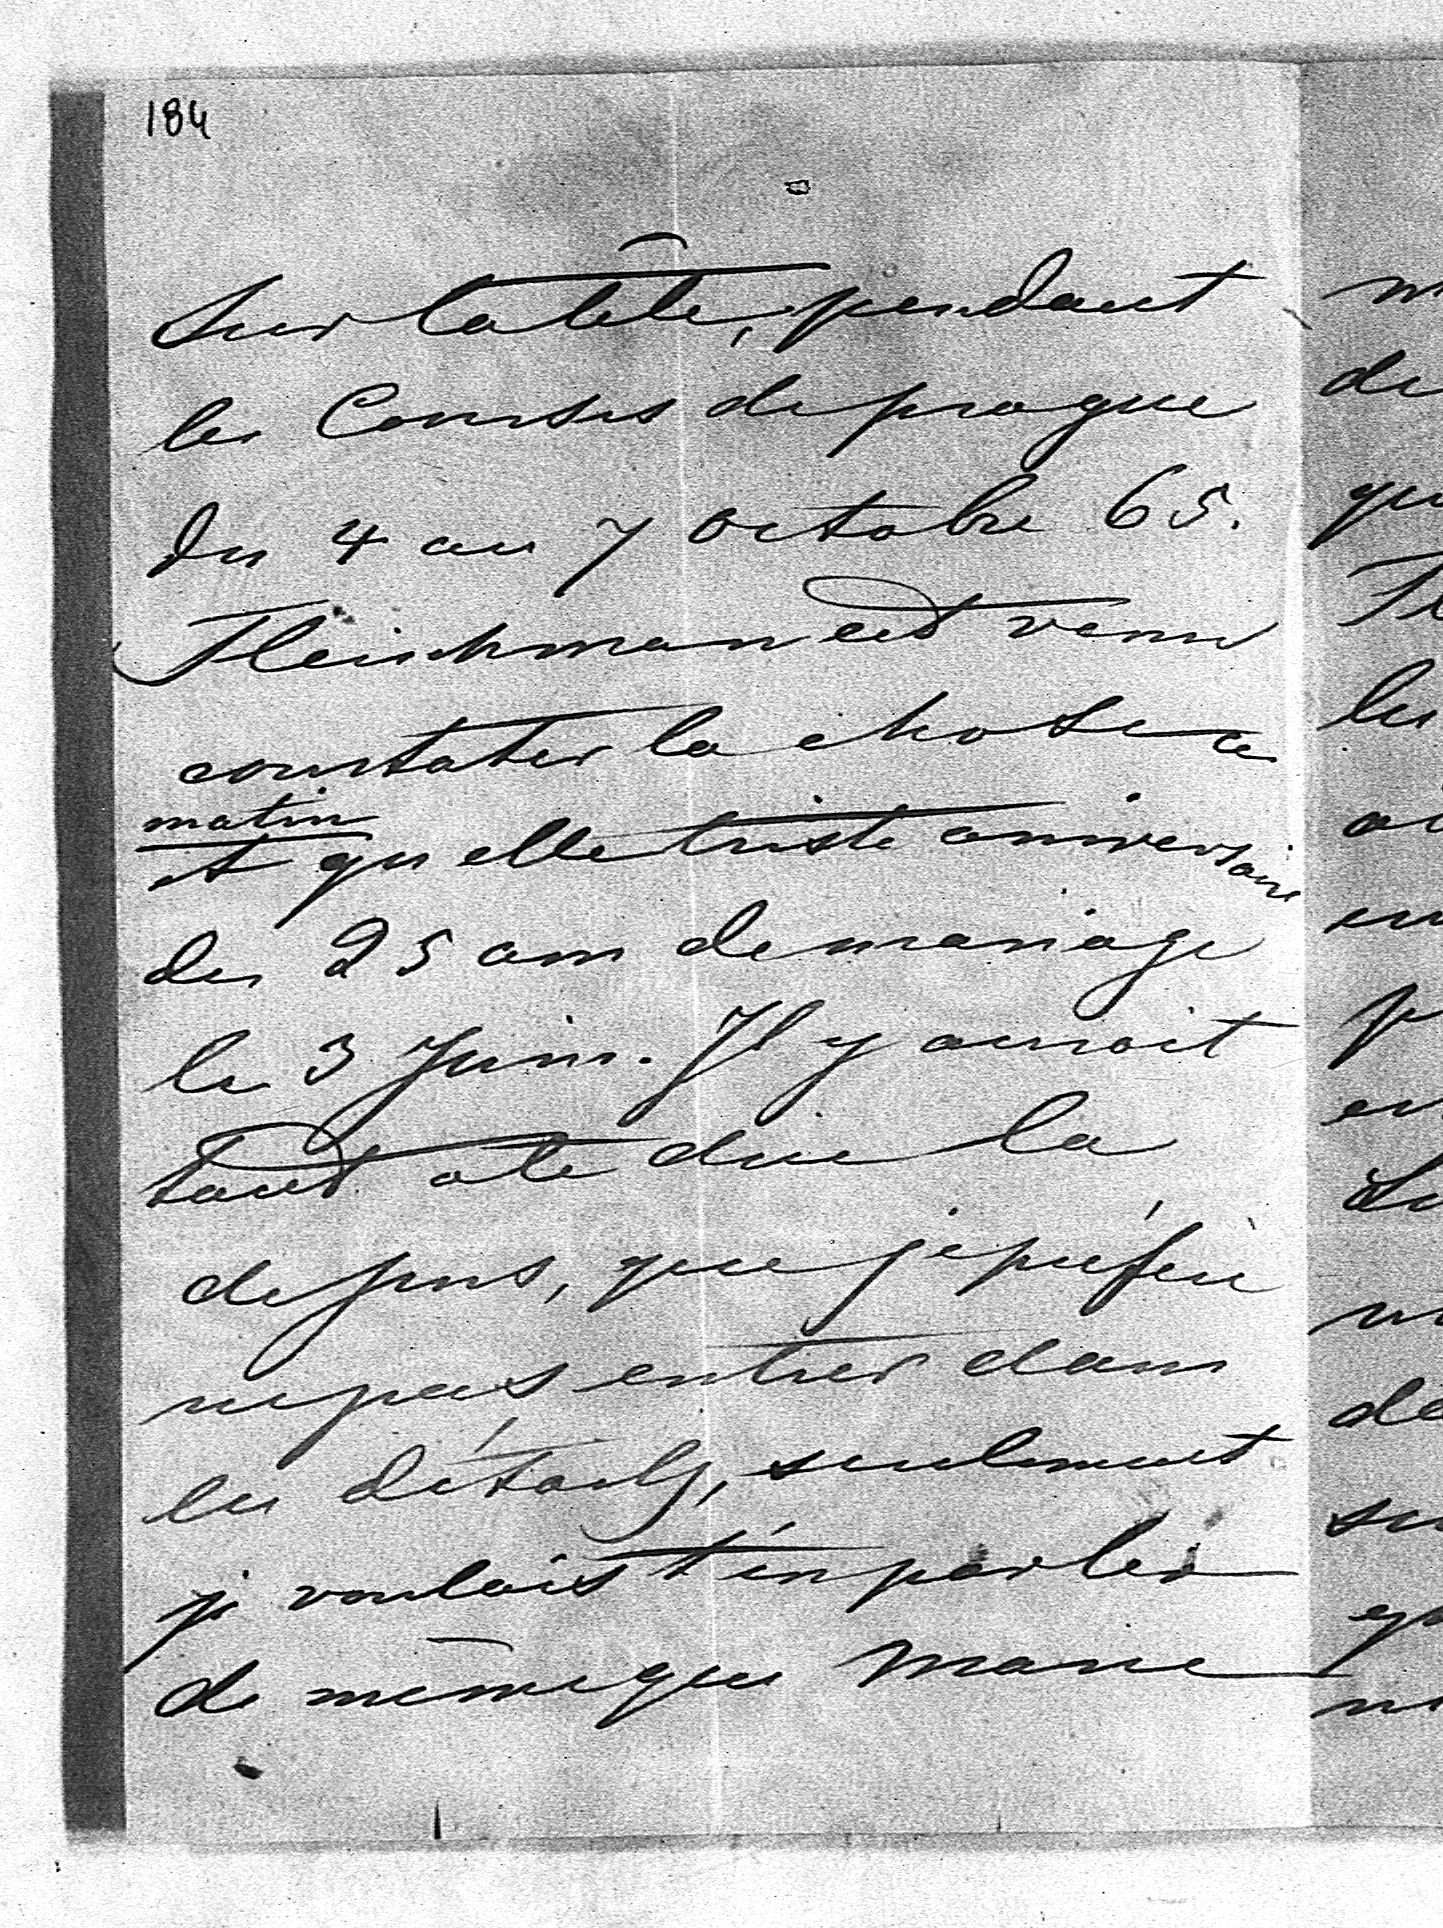 184
Sur la tête, pendant
les Courses de prague
du 4 au 7 octobre 65.
Fleischman est venu
constater la chose ce
matin
et quelle triste aniversaire
des 25 ans de mariage
le 3 Juin. Il y auroit
tant a te dire la
de , que je préfère
ne pas entrer dans
les détails, seulement
je voulais t'en parler
de même que Marie